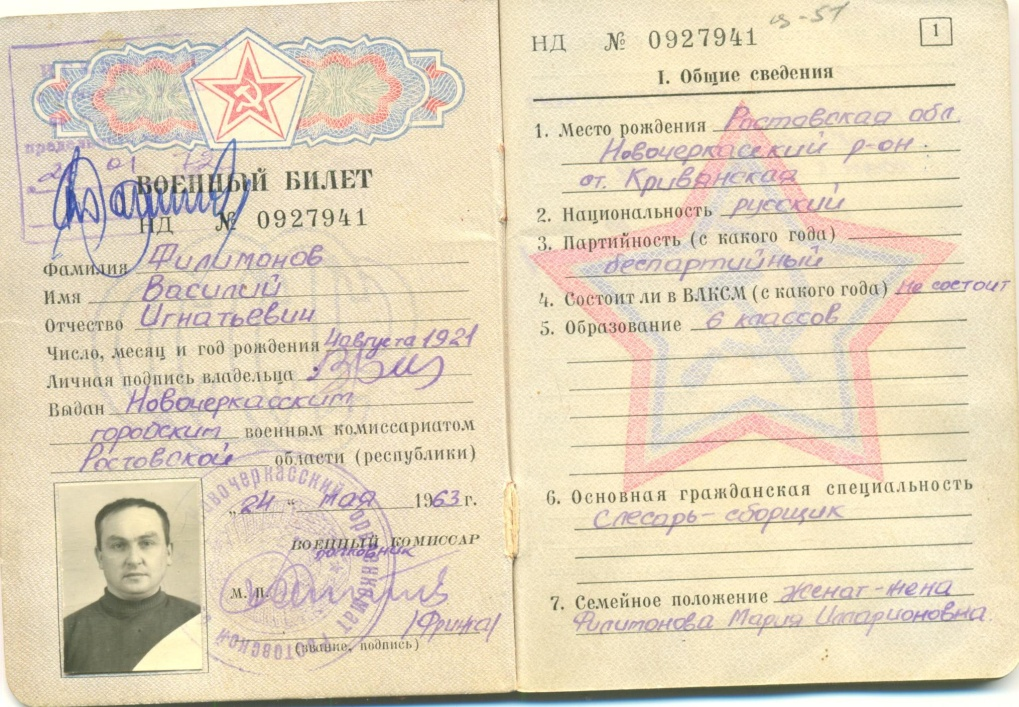 ВОЕННЫЙ БИЛЕТ
НД № 0927941
Фамилия Филимонов
Имя Василий
Отчество Игнатьевич
Число, месяц и год рождения 4 августа 1921
Личная подпись владельца
Выдан Новочеркасским
городским военным комиссариатом
Ростовской области (республики)
„24" мая 1963 г.
ВОЕННЫЙ КОМИССАР
полковник
М. П.
(звание, подпись)
НД № 0927941
1
I. Общие сведения
1. Место рождения Ростовская обл.
Новочеркасский р-он.
ст. Кривянская
2. Национальность русский
3. Партийность (с какого года)
беспартийный
4. Состоит ли в ВЛКСМ (с какого года) Не состоит
5. Образование 6 классов
6. Основная гражданская специальность
Слесарь-сборщик
7. Семейное положение женат-жена
Филимонова Мария Иларионовна.